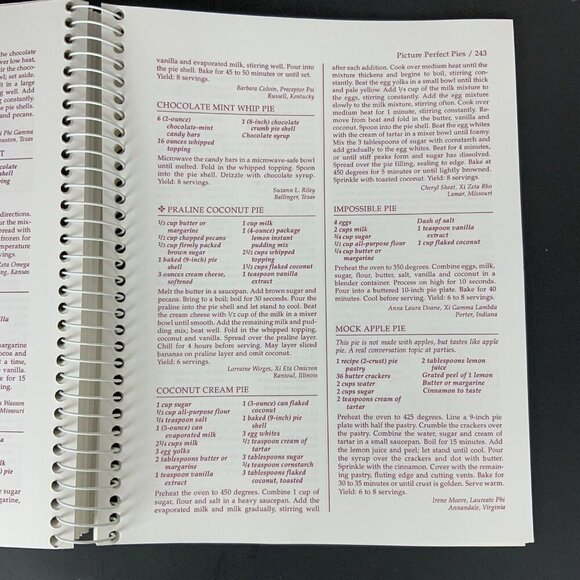 the chocolate
for the
bowl; set aside.
in a large
well. Add
constantly.
the pie shell.
and pecans.
Phi Gamma
Houston, Texas
chocolate
syrup
whipped
topping
directions.
frozen for
temperature
servings.
Zeta Omega
Kansas
vanilla
margarine
cocoa and
at a time,
vanilla.
for 15
Wasson
Missouri
sugar
margarine,
vanilla and evaporated milk, stirring well. Pour into
the pie shell. Bake for 45 to 50 minutes or until set.
Yield: 8 servings.
Barbara Colvin, Preceptor Psi
Russell, Kentucky
CHOCOLATE MINT WHIP PIE
6 (2-ounce)
chocolate-mint
candy bars
16 ounces whipped
topping
1 (8-inch) chocolate
crumb pie shell
Chocolate syrup
Microwave the candy bars in a microwave-safe bowl
until melted. Fold in the whipped topping. Spoon
into the pie shell. Drizzle with chocolate syrup.
Yield: 8 servings.
Suzann L. Riley
Ballinger, Texas
❖ PRALINE COCONUT PIE
1/3 cup butter or
margarine
1/2 cup chopped pecans
1/3 cup firmly packed
brown sugar
1 baked (9-inch) pie
shell
3 ounces cream cheese,
softened
1 cup milk
1 (4-ounce) package
lemon instant
pudding mix
2 1/2 cups whipped
topping
1 1/2 cups flaked coconut
1 teaspoon vanilla
extract
Melt the butter in a saucepan. Add brown sugar and
pecans. Bring to a boil; boil for 30 seconds. Pour the
praline into the pie shell and let stand to cool. Beat
the cream cheese with 1/2 cup of the milk in a mixer
bowl until smooth. Add the remaining milk and pud-
ding mix; beat well. Fold in the whipped topping,
coconut and vanilla. Spread over the praline layer.
Chill for 4 hours before serving. May layer sliced
bananas on praline layer and omit coconut.
Yield: 6 servings.
Lorraine Werges, Xi Eta Omicron
Rantoul, Illinois
COCONUT CREAM PIE
1 cup sugar
1/3 cup all-purpose flour
1/4 teaspoon salt
1 (5-ounce) can
evaporated milk
2 1/4 cups milk
3 egg yolks
2 tablespoons butter or
margarine
1 teaspoon vanilla
extract
1 (3-ounce) can flaked
coconut
1 baked (9-inch) pie
shell
3 egg whites
1/2 teaspoon cream of
tartar
3 tablespoons sugar
3/4 teaspoon cornstarch
3 tablespoons flaked
coconut, toasted
Preheat the oven to 450 degrees. Combine 1 cup of
sugar, flour and salt in a heavy saucepan. Add the
evaporated milk and milk gradually, stirring well
Picture Perfect Pies / 243
after each addition. Cook over medium heat until the
mixture thickens and begins to boil, stirring con-
stantly. Beat the egg yolks in a small bowl until thick
and pale yellow. Add 1/4 of the milk mixture to
the eggs, stirring constantly. Add the egg mixture
slowly to the milk mixture, stirring often. Cook over
medium heat for 1 minute, stirring constantly. Re-
move from heat and fold in the butter, vanilla and
coconut. Spoon into the pie shell. Beat the egg whites
with the cream of tartar in a mixer bowl until foamy.
Mix the 3 tablespoons of sugar with constarch and
add gradually to the egg whites. Beat for 4 minutes,
or until stiff peaks form and sugar has dissolved.
Spread over the pie filling, sealing to edge. Bake at
450 degrees for 5 minutes or until lightly browned.
Sprinkle with toasted coconut. Yield: 8 servings.
Cheryl Sheat, Xi Zeta Rho
Lamar, Missouri
IMPOSSIBLE PIE
4 eggs
2 cups milk
3/4 cup sugar
1/2 cup all-purpose flour
1/4 cup butter or
margarine
Dash of salt
1 teaspoon vanilla
extract
1 cup flaked coconut
Preheat the oven to 350 degrees. Combine eggs, milk,
sugar, flour, butter, salt, vanilla and coconut in a
blender container. Process on high for 10 seconds.
Pour into a buttered 10-inch pie plate. Bake for 40
minutes. Cool before serving. Yield: 6 to 8 servings.
Anna Laura Doane, Xi Gamma Lambda
Porter, Indiana
MOCK APPLE PIE
This pie is not made with apples, but tastes like apple
pie. A real conversation topic at parties.
1 recipe (2-crust) pie
pastry
36 butter crackers
2 cups water
2 cups sugar
2 teaspoons cream of
tartar
2 tablespoons lemon
juice
Grated peel of 1 lemon
Butter or margarine
Cinnamon to taste
Preheat the oven to 425 degrees. Line a 9-inch pie
plate with half the pastry. Crumble the crackers over
the pastry. Combine the water, sugar and cream of
tartar in a small saucepan. Boil for 15 minutes. Add
the lemon juice and peel; let stand until cool. Pour
the syrup over the crackers and dot with butter.
Sprinkle with the cinnamon. Cover with the remain-
ing pastry, fluting edge and cutting vents. Bake for
30 to 35 minutes or until crust is golden. Serve warm.
Yield: 6 to 8 servings.
Irene Moore, Laureate Phi
Annandale, Virginia